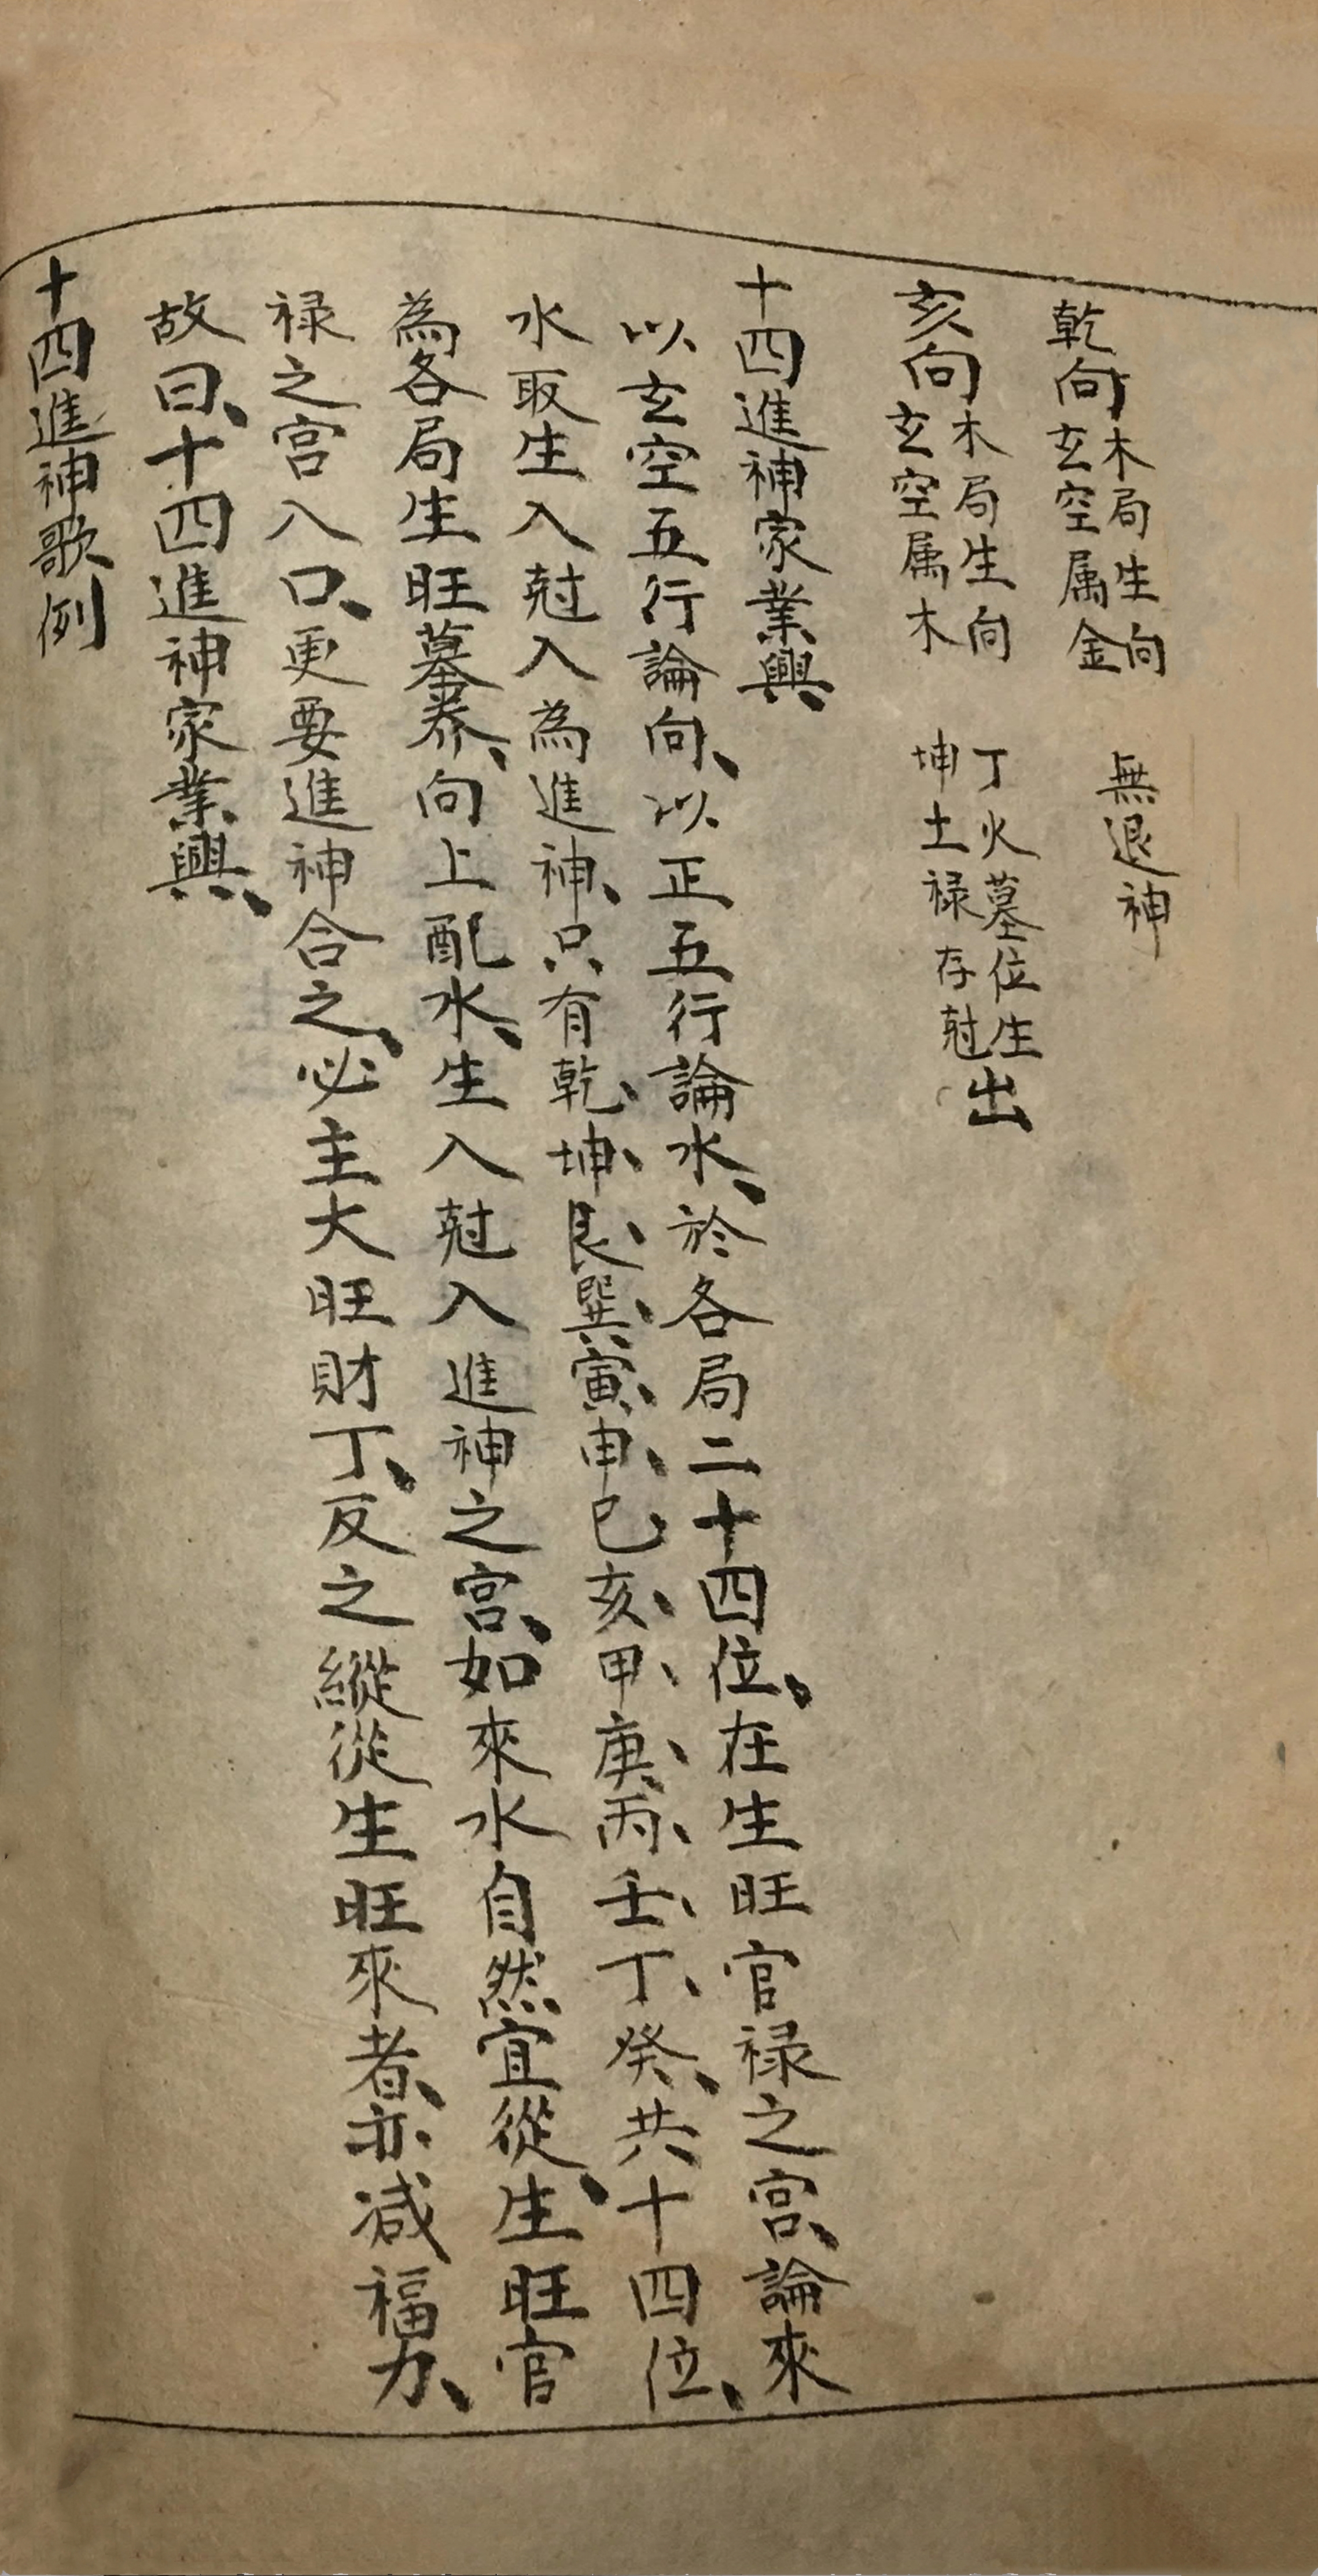 乾向木局生向玄空属金 無退神
亥向木局生向玄空属木 丁火墓位生坤土禄存尅出
十四進神家業興、
以玄空五行論向、以正五行論水、於各局二十四位、在生旺官禄之宫、論來
水取生入尅入為進神、只有乾、坤、艮、巽、寅、申、巳、亥、甲、庚、丙、壬、丁、癸、共十四位、
為各局生旺墓养、向上配水、生入尅入進神之宫、如來水自然宜從、生旺官
禄之宫入口、更要進神合之、必主大旺財丁、反之縱從生旺來者、亦减福力、
故曰、十四進神家業興、
十四進神歌例